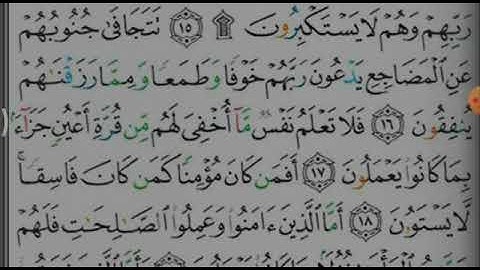 رَبِّهِمْ وَهُمْ لَا يَسْتَكْبِرُونَ ۩ ١٥ تَتَجَافَىٰ جُنُوبُهُمْ
عَنِ ٱلْمَضَاجِعِ يَدْعُونَ رَبَّهُمْ خَوْفًا وَطَمَعًا وَمِمَّا رَزَقْنَٰهُمْ
يُنفِقُونَ ١٦ فَلَا تَعْلَمُ نَفْسٌ مَّآ أُخْفِىَ لَهُم مِّن قُرَّةِ أَعْيُنٍ جَزَآءًۢ
بِمَا كَانُوا۟ يَعْمَلُونَ ١٧ أَفَمَن كَانَ مُؤْمِنًا كَمَن كَانَ فَاسِقًا ۚ
لَّا يَسْتَوُۥنَ ١٨ أَمَّا ٱلَّذِينَ ءَامَنُوا۟ وَعَمِلُوا۟ ٱلصَّٰلِحَٰتِ فَلَهُمْ